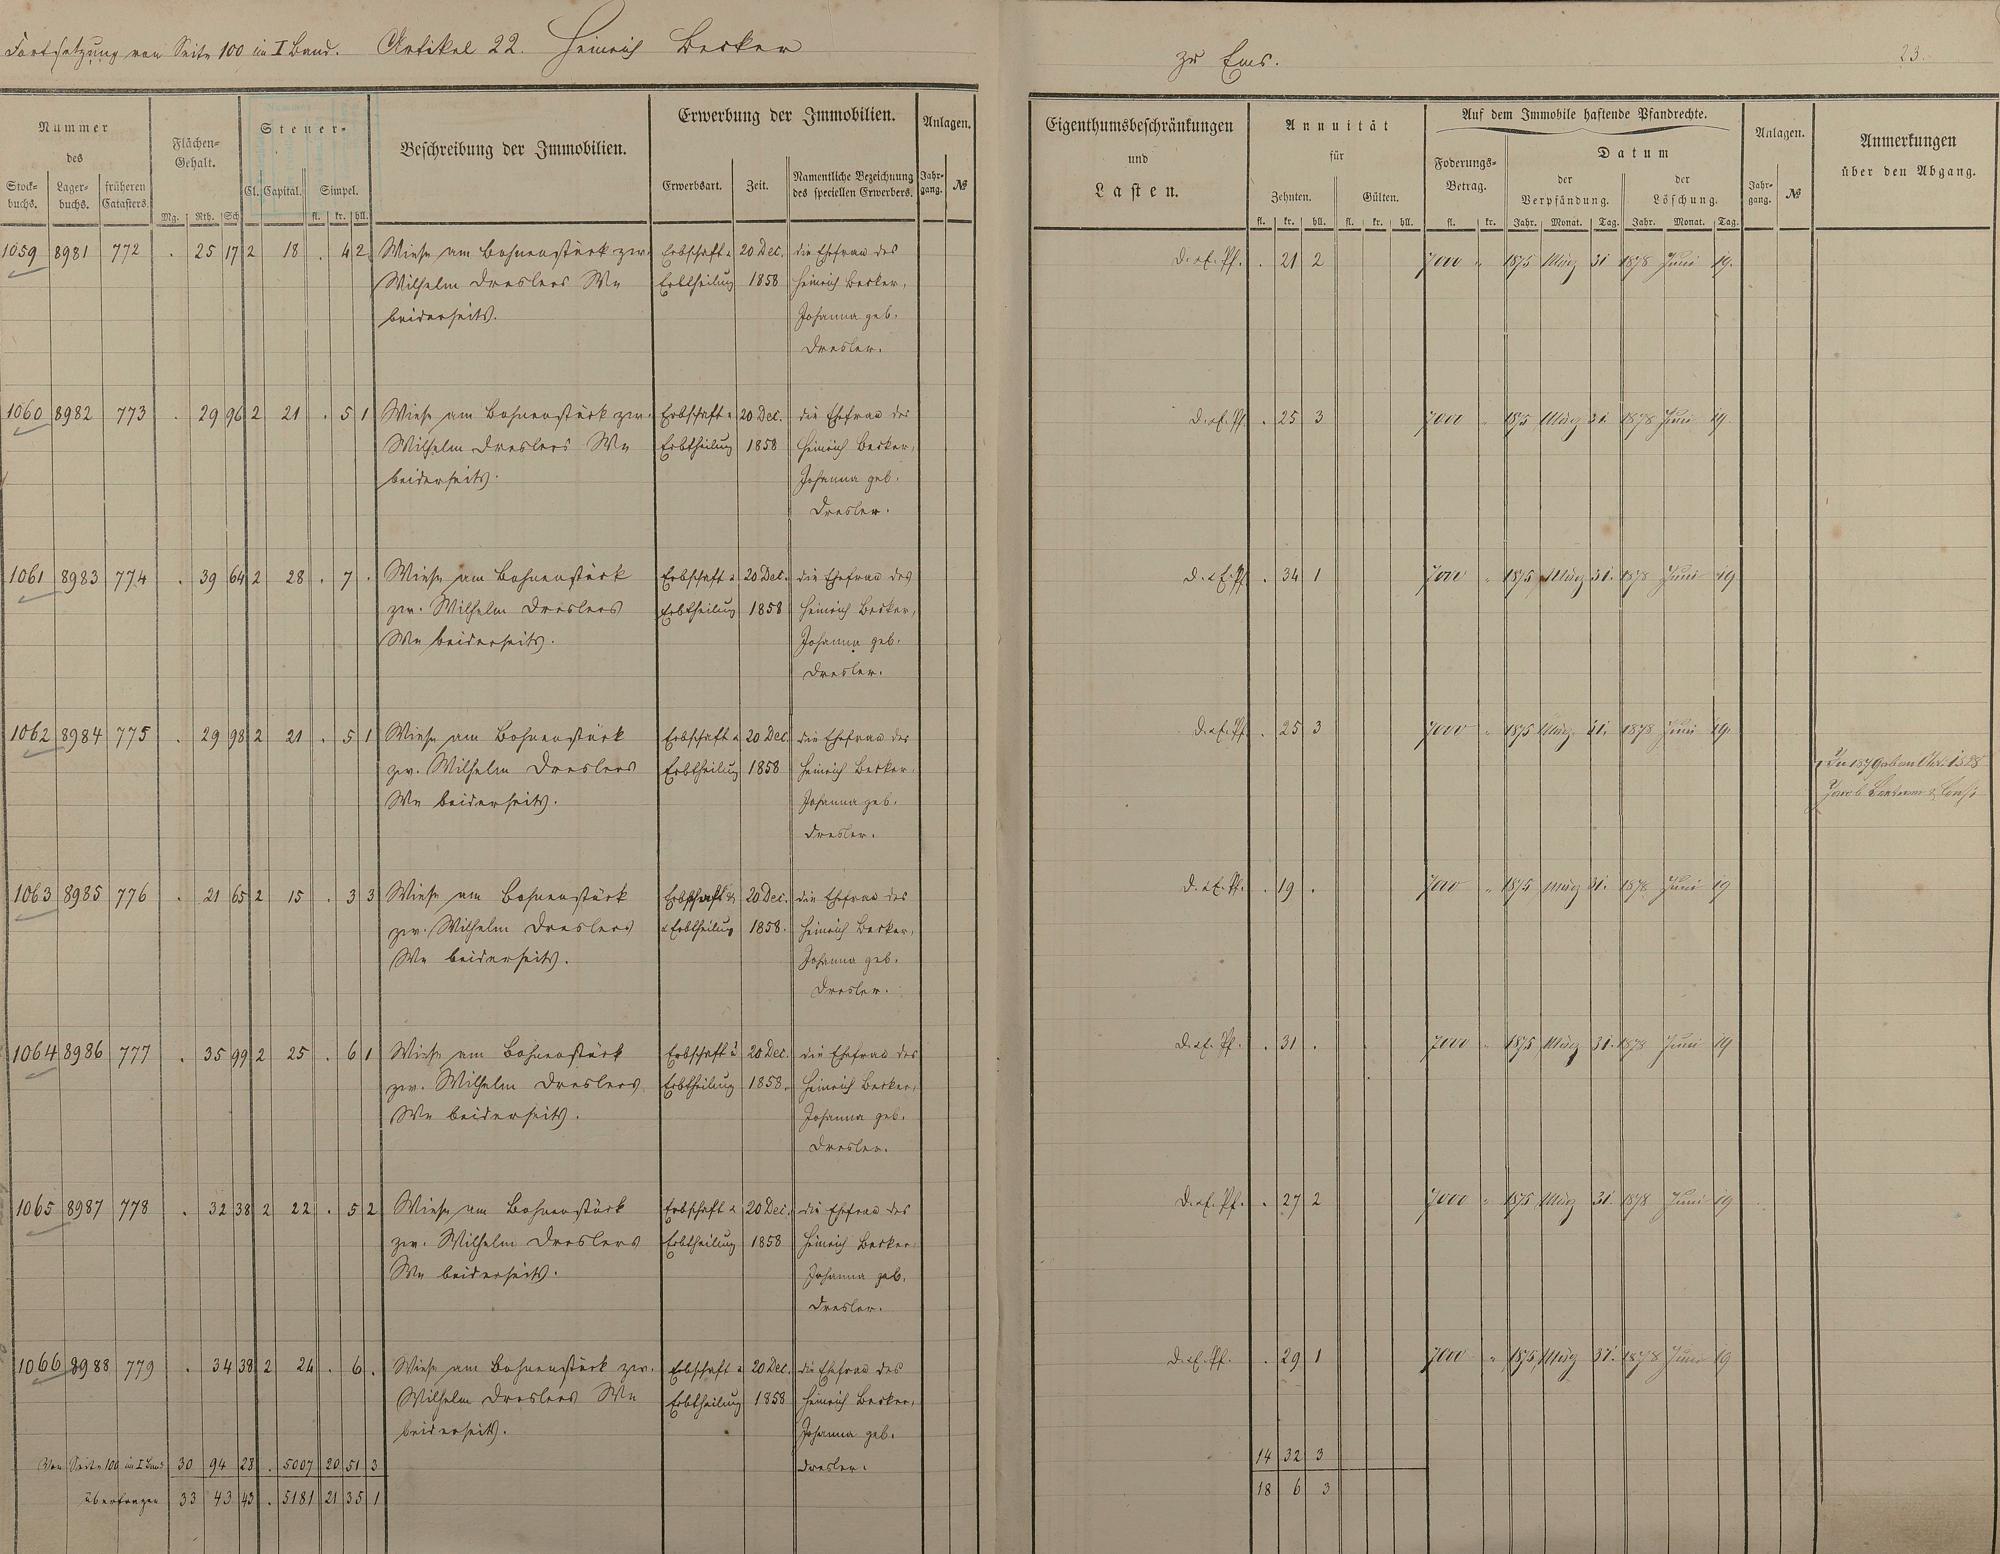 Fortsetzung von Seite 100 im I Band. Artikel 22. Heinrich Becker
Nummer des
Stock- buchs. Lager- buchs. früheren Catasters.
Flächen- Gehalt.
Mg. Rth. Sch
Steuer-
Cl. Capital. Simpel.
fl. kr. hll.
Beschreibung der Immobilien.
Erwerbung der Immobilien.
Erwerbsart. Zeit. Namentliche Bezeichnung des speciellen Erwerbers.
Anlagen.
Jahr- gang. №
1059 8981 772 . 25 17 2 18 . 4 2 Wiese am Bohnenstück zw. Erbschaft u 20 Dec. die Ehefrau des
Wilhelm Dreslers We Erbtheilung 1858 Heinrich Becker,
beiderseits. Johanna geb.
Dresler.
1060 8982 773 . 29 96 2 21 . 5 1 Wiese am Bohnenstück zw. Erbschaft u 20 Dec. die Ehefrau des
Wilhelm Dreslers We Erbtheilung 1858 Heinrich Becker,
beiderseits. Johanna geb.
Dresler.
1061 8983 774 . 39 64 2 28 . 7 . Wiese am Bohnenstück Erbschaft u 20 Dec. die Ehefrau des
zw. Wilhelm Dreslers Erbtheilung 1858 Heinrich Becker,
We beiderseits. Johanna geb.
Dresler.
1062 8984 775 . 29 98 2 21 . 5 1 Wiese am Bohnenstück Erbschaft u 20 Dec. die Ehefrau des
zw. Wilhelm Dreslers Erbtheilung 1858 Heinrich Becker.
We beiderseits. Johanna geb.
Dresler.
1063 8985 776 . 21 65 2 15 . 3 3 Wiese am Bohnenstück Erbschaft 20 Dec. die Ehefrau des
zw. Wilhelm Dreslers u Erbtheilung 1858. Heinrich Becker,
We beiderseits. Johanna geb.
Dresler.
1064 8986 777 . 35 99 2 25 . 6 1 Wiese am Bohnenstück Erbschaft u 20 Dec. die Ehefrau des
zw. Wilhelm Dreslers Erbtheilung 1858. Heinrich Becker,
We beiderseits. Johanna geb.
Dresler.
1065 8987 778 . 32 38 2 22 . 5 2 Wiese am Bohnenstück Erbschaft u 20 Dec. die Ehefrau des
zw. Wilhelm Dreslers Erbtheilung 1858 Heinrich Becker
We beiderseits. Johanna geb.
Dresler.
1066 8988 779 . 34 38 2 24 . 6 . Wiese am Bohnenstück zw. Erbschaft u 20 Dec. die Ehefrau des
Wilhelm Dreslers We Erbtheilung 1858 Heinrich Becker,
beiderseits. Johanna geb.
Von Seite 100 im I Band 30 94 28 . 5007 20 51 3 Dresler.
übertragen 33 43 43 . 5181 21 35 1
zu Ems. 23.
Eigenthumsbeschränkungen
und
Lasten.
Annuität
für
Zehnten. Gülten.
fl. kr. hll. fl. kr. hll.
Auf dem Immobile haftende Pfandrechte.
Foderungs- Betrag.
fl. kr.
Datum
der Verpfändung. der Löschung.
Jahr. Monat. Tag. Jahr. Monat. Tag.
Anlagen.
Jahr- gang. №
Anmerkungen
über den Abgang.
D. u E. Pf. . 21 2 7000 " 1875 März 31 1878 Juni 19.
D. u E. Pf. . 25 3 7000 " 1875 März 31. 1878 Juni 19.
D. u E. Pf. . 34 1 7000 " 1875 März 31. 1878 Juni 19
D. u E. Pf. . 25 3 7000 " 1875 März 31. 1878 Juni 19.
D. u E. Pf. . 19 . 7000 " 1875 März 31. 1878 Juni 19
D. u E. Pf. . 31 . 7000 " 1875 März 31. 1878 Juni 19
D. u E. Pf. . 27 2 7000 " 1875 März 31. 1878 Juni 19
D. u E. Pf. . 29 1 7000 " 1875 März 31. 1878 Juni 19
14 32 3
18 6 3